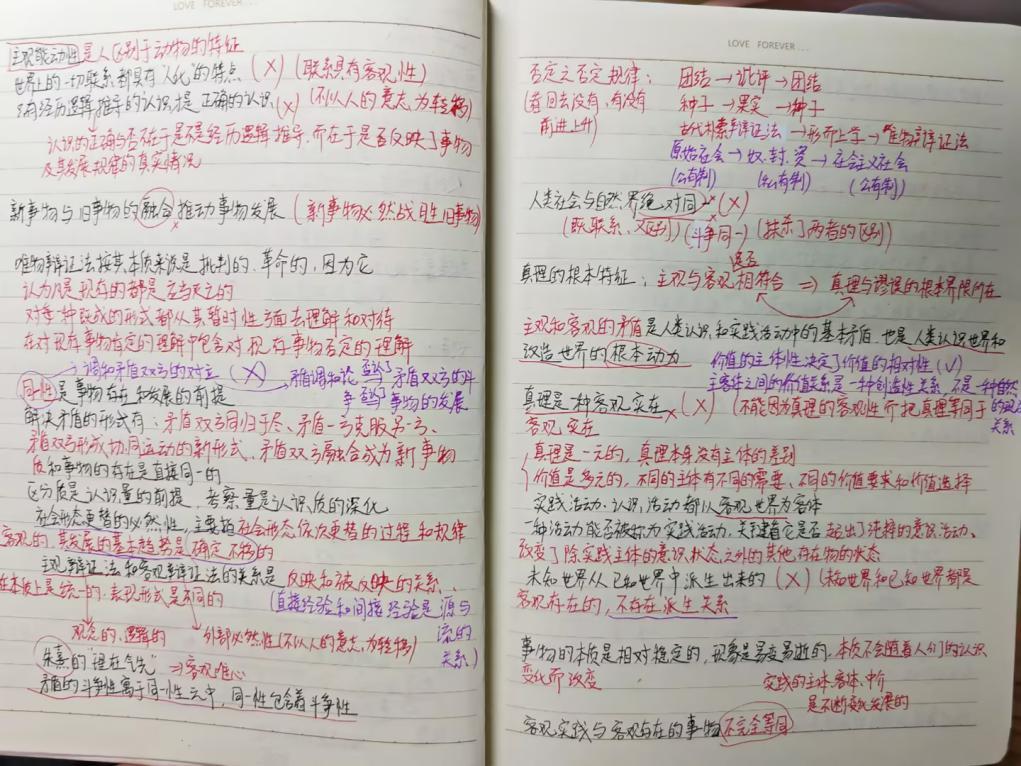 LOVE FOREVER...
主观能动性是人区别于动物的特征
世界上的一切联系都具有"人化"的特点 (X) (联系具有客观性)
只有经历逻辑推导的认识才是正确的认识 (X) (不以人的意志为转移)
认识的正确与否不在于是不是经历逻辑推导,而在于是否反映了事物
及其发展规律的真实情况
新事物与旧事物的融合推动事物发展 (新事物必然战胜旧事物)
唯物辩证法按其本质来说是批判的、革命的,因为它
认为凡是现存的都是应当灭亡的
对每一种既成的形式都从其暂时性方面去理解和对待
在对现存事物肯定的理解中包含对现存事物否定的理解
→调和矛盾双方的对立 (X) →矛盾调和论
矛盾双方的斗
同一性是事物存在和发展的前提
事物的发展
解决矛盾的形式有:矛盾双方同归于尽、矛盾一方克服另一方、
矛盾双方形成协同运动的新形式、矛盾双方融合成为新事物
质和事物的存在是直接同一的
区分质是认识量的前提,考察量是认识质的深化
社会形态更替的必然性,主要指社会形态依次更替的过程和规律
客观的,其发展的基本趋势是确定不移的
主观辩证法和客观辩证法的关系是反映和被反映的关系
在本质上是统一的,表现形式是不同的
(直接经验和间接经验是源与
流的
关系)
观念的、逻辑的
外部必然性(不以人的意志为转移)
朱熹的"理在气先" ⇒客观唯心
矛盾的斗争性寓于同一性之中,同一性包含着斗争性
LOVE FOREVER...
否定之否定规律: 团结→批评→团结
(有回去没有,有没有 种子→果实→种子
前进上升) 古代朴素辩证法→形而上学→唯物辩证法
原始社会→奴.封.资→社会主义社会
(公有制) (私有制) (公有制)
人类社会与自然界绝对同一 (X)
(既联系、又区别) (斗争同一) (抹杀了两者的区别)
是否
真理的根本特征:主观与客观相符合 ⇒ 真理与谬误的根本界限所在
主观和客观的矛盾是人类认识和实践活动中的基本矛盾,也是人类认识世界和
改造世界的根本动力
价值的主体性决定了价值的相对性(√)
主客体之间的价值关系是一种创造性关系,不是一种自然
的
关系
真理是一种客观实在 (X) (不能因为真理的客观性而把真理等同于
客观实在
真理是一元的,真理本身没有主体的差别
价值是多元的,不同的主体有不同的需要、不同的价值要求和价值选择
实践活动、认识活动都以客观世界为客体
一种活动能否被称为实践活动,关键看它是否超出了纯粹的意识活动、
改变了除实践主体的意识状态之外的其他存在物的状态
未知世界从已知世界中派生出来的 (X) (未知世界和已知世界都是
客观存在的,不存在派生关系
事物的本质是相对稳定的,现象是易变易逝的.本质不会随着人们的认识
变化而改变
实践的主体、客体、中介
是不断变化发展的
客观实践与客观存在的事物不完全等同